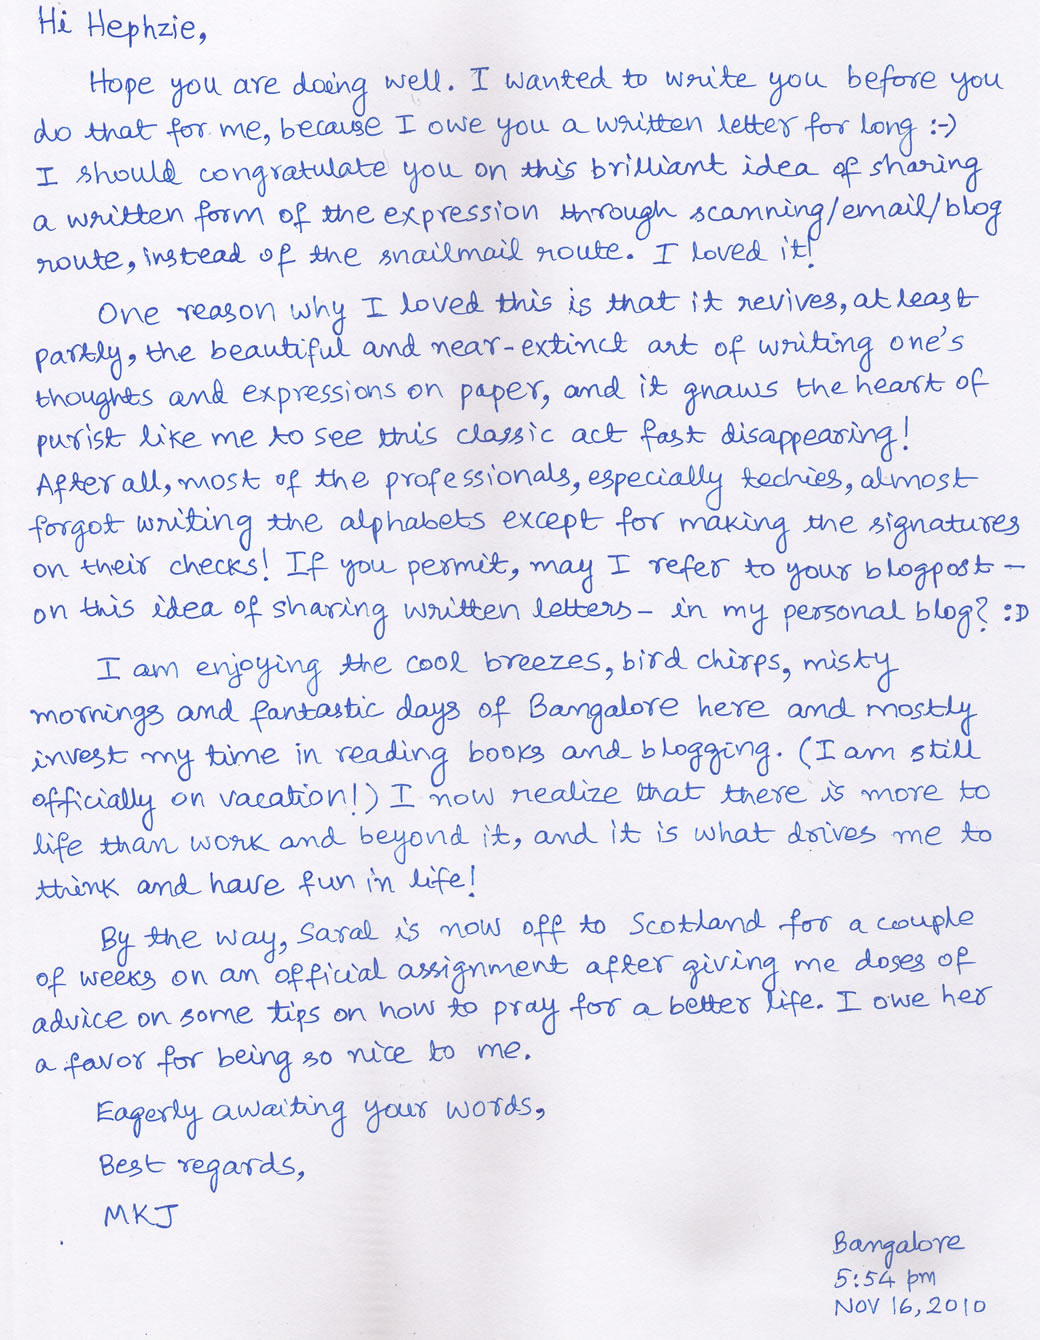 Hi Hephzie,
Hope you are doing well. I wanted to write you before you
do that for me, because I owe you a written letter for long :-)
I should congratulate you on this brilliant idea of sharing
a written form of the expression through scanning/email/blog
route, instead of the snailmail route. I loved it!
One reason why I loved this is that it revives, at least
partly, the beautiful and near-extinct art of writing one's
thoughts and expressions on paper, and it gnaws the heart of
purist like me to see this classic act fast disappearing!
After all, most of the professionals, especially techies, almost
forgot writing the alphabets except for making the signatures
on their checks! If you permit, may I refer to your blogpost -
on this idea of sharing written letters - in my personal blog? :D
I am enjoying the cool breezes, bird chirps, misty
mornings and fantastic days of Bangalore here and mostly
invest my time in reading books and blogging. (I am still
officially on vacation!) I now realize that there is more to
life than work and beyond it, and it is what drives me to
think and have fun in life!
By the way, Saral is now off to Scotland for a couple
of weeks on an official assignment after giving me doses of
advice on some tips on how to pray for a better life. I owe her
a favor for being so nice to me.
Eagerly awaiting your words,
Best regards,
MKJ
Bangalore
5:54 pm
Nov 16, 2010